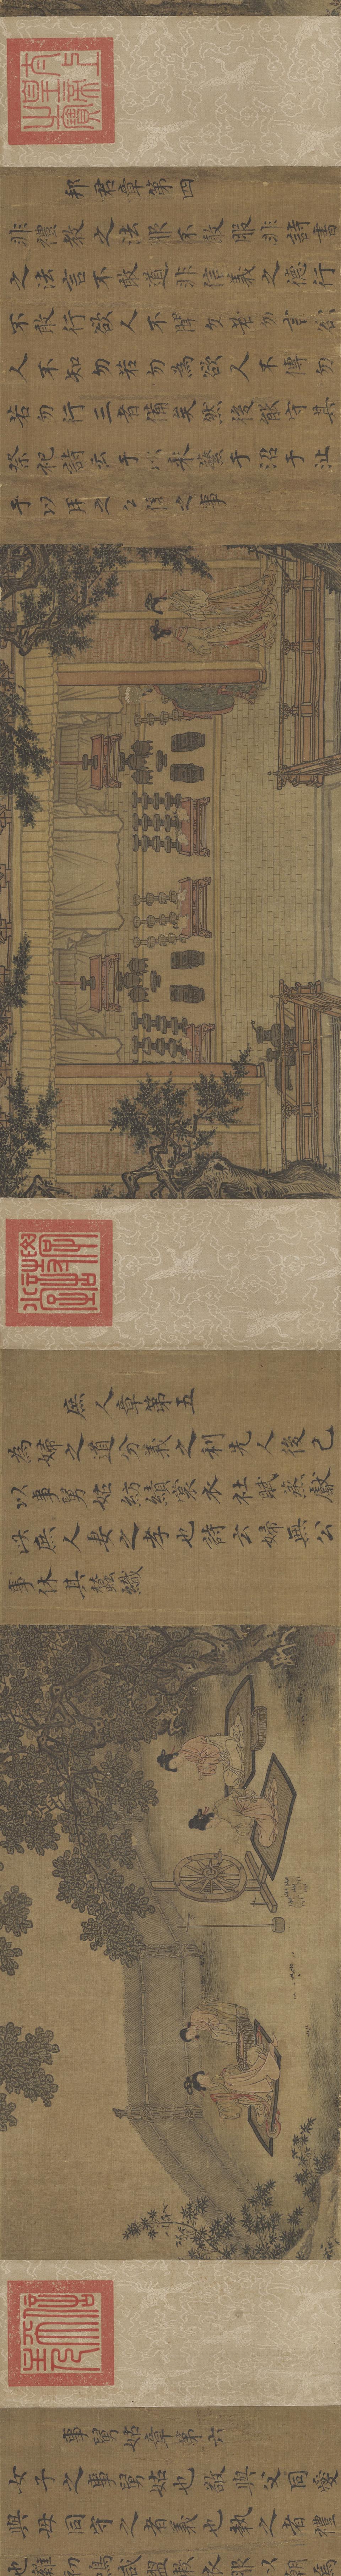 太上皇帝之寶
邦君章第四
非禮教之法服不敢服非詩書
之法言不敢道非信義之德行
不敢行欲人不聞勿若勿言欲
人不知勿若勿為欲人不傳勿
若勿行三者備矣然後能守其
祭祀詩云于以采蘩于沼于沚
于以用之公侯之事
庶人章第五
為婦之道分義之利先人後己
以事舅姑紡績裳衣社賦蒸獻
此庶人妻之孝也詩云婦無公
事休其蠶織
事舅姑章第六
女子之事舅姑也敬與父同愛
與母同守之者義也執之者禮
也雞初鳴咸盥漱衣服以朝焉